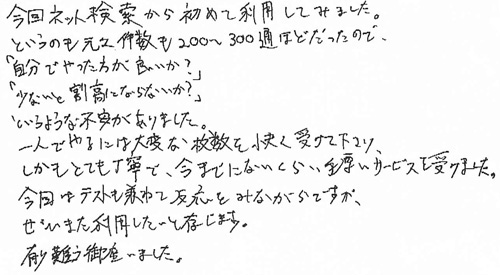 今回ネット検索から初めて利用してみました。
というのも元々件数も200〜300通ほどだったので、
「自分でやった方が良いか?」
「少ないと割高にならないか?」
というような不安がありました。
一人でやるには大変な枚数を快く受けて下さり、
しかもとても丁寧で、今までにないくらい手厚いサービスを受けました。
今回はテストも兼ねて反応をみながらですが、
ぜひまた利用したいと存じます。
有難う御座いました。